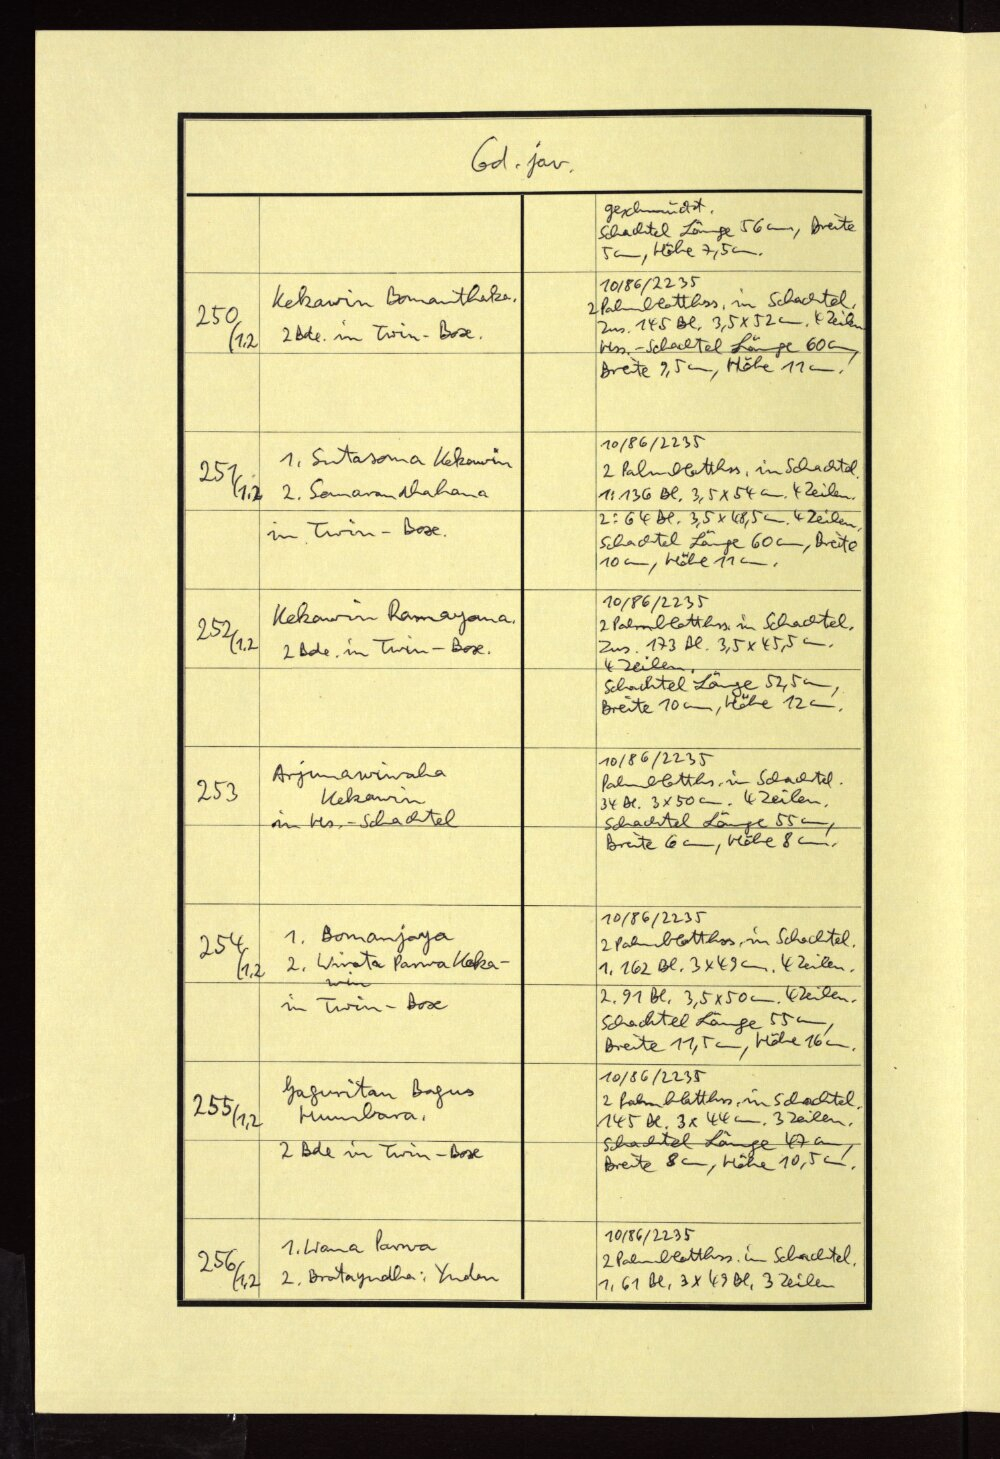 Cod. jav.
geschmückt.
Schachtel Länge 56 cm, Breite
5 cm, Höhe 7,5 cm.
250/1,2
Kekawin Bomanthaka.
2 Bde. in Twin-Box.
10/86/2235
2 Palmblatthss. in Schachtel.
Zus. 145 Bl. 3,5 x 52 cm. 4 Zeilen
Hss.-Schachtel Länge 60 cm,
Breite 9,5 cm, Höhe 11 cm.
251/1,2
1. Sutasoma Kekawin
2. Semarandhahana
in Twin-Box.
10/86/2235
2 Palmblatthss. in Schachtel.
1: 136 Bl. 3,5 x 54 cm. 4 Zeilen.
2: 64 Bl. 3,5 x 48,5 cm. 4 Zeilen,
Schachtel Länge 60 cm, Breite
10 cm, Höhe 11 cm.
252/1,2
Kekawin Ramayana.
2 Bde. in Twin-Box.
10/86/2235
2 Palmblatthss. in Schachtel.
Zus. 173 Bl. 3,5 x 45,5 cm.
4 Zeilen.
Schachtel Länge 52,5 cm,
Breite 10 cm, Höhe 12 cm.
253
Arjunawiwaha
Kekawin
in Hs.-Schachtel
10/86/2235
Palmblatths. in Schachtel.
34 Bl. 3 x 50 cm. 4 Zeilen.
Schachtel Länge 55 cm,
Breite 6 cm, Höhe 8 cm.
254/1,2
1. Bomanjaya
2. Wirata Parwa Keka-
win
in Twin-Box
10/86/2235
2 Palmblatthss. in Schachtel.
1. 162 Bl. 3 x 49 cm. 4 Zeilen.
2. 91 Bl. 3,5 x 50 cm. 4 Zeilen.
Schachtel Länge 55 cm,
Breite 11,5 cm, Höhe 16 cm.
255/1,2
Gaguritan Bagus
Humbara.
2 Bde in Twin-Box
10/86/2235
2 Palmblatthss. in Schachtel.
145 Bl. 3 x 44 cm. 3 Zeilen.
Schachtel Länge 47 cm,
Breite 8 cm, Höhe 10,5 cm.
256/1,2
1. Wana Parwa
2. Bratayudha: Yudan
10/86/2235
2 Palmblatthss. in Schachtel.
1. 61 Bl. 3 x 49 Bl. 3 Zeilen